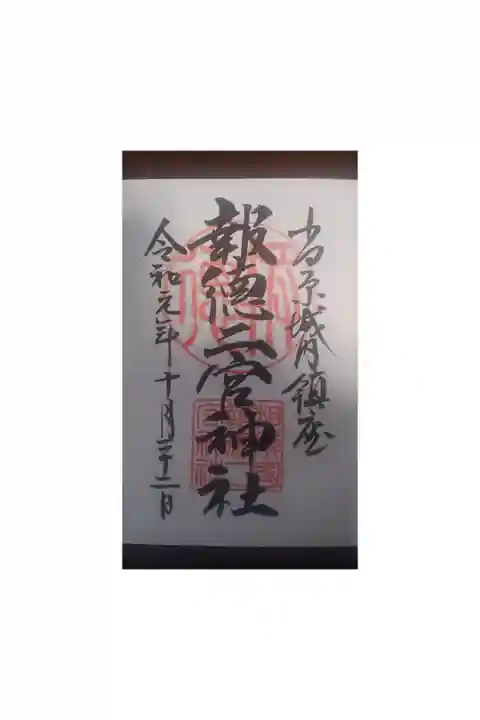 小田原城内鎮座
報徳二宮神社
令和元年十月二十二日